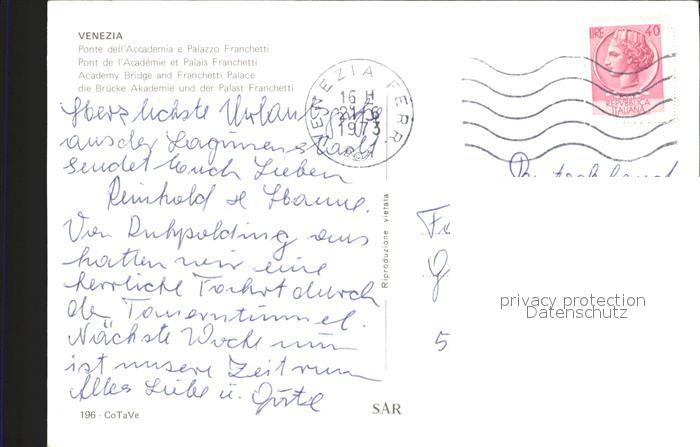 VENEZIA
Ponte dell'Accademia e Palazzo Franchetti
Pont de l'Académie et Palais Franchetti
Academy Bridge and Franchetti Palace
die Brücke Akademie und der Palast Franchetti
VENEZIA FERR.
16 H
1973
LIRE 40
REPVBBLICA
ITALIANA
Herzlichste Urlaubsgrüße
aus der Lagunenstadt
sendet Euch Lieben
Reinhold u. Hanne.
Von Ruhpolding aus
hatten wir eine
herrliche Fahrt durch
de Tauerntunnel.
Nächste Woche nun
ist unsere Zeit rum
Alles Liebe u. Gute
Riproduzione vietata
Deutschland
5
privacy protection
Datenschutz
196 - CoTaVe
SAR